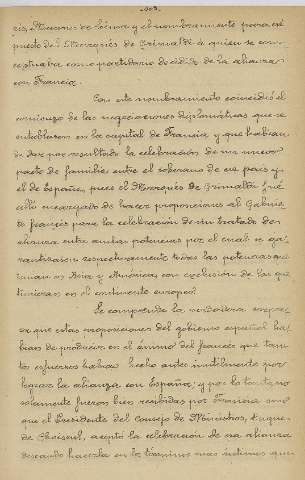 cio, Masones de Lima y el nombramiento para este
puesto del Marqués de Grimaldi á quien se con-
ceptuaba como partidario decidido de la alianza
con Francia.
Con este nombramiento coincidió el
comienzo de las negociaciones diplomáticas que se
entablaron en la capital de Francia y que habían
de dar por resultado la celebración de un nuevo
pacto de familia entre el soberano de ese país y
el de España, pues el Marqués de Grimaldi fué
el encargado de hacer proposiciones al Gabinete
francés para la celebración de un tratado de a-
lianza entre ambas potencias por el cual se ga-
rantizasen respectivamente todas las potencias que
tenían en Asia y América con exclusión de las que
tuvieran en el continente europeo.
Se comprende la verdadera sorpre-
sa que estas proposiciones del gobierno español ha-
bían de producir en el ánimo del francés que tan-
tos esfuerzos había hecho antes inutilmente por
hacer la alianza con España; y por lo tanto no
solamente fueron bien recibidas por Francia sino
que el Presidente del Consejo de Ministros, Duque
de Choiseul, aceptó la celebración de esa alianza
deseando hacerla en los términos mas íntimos que